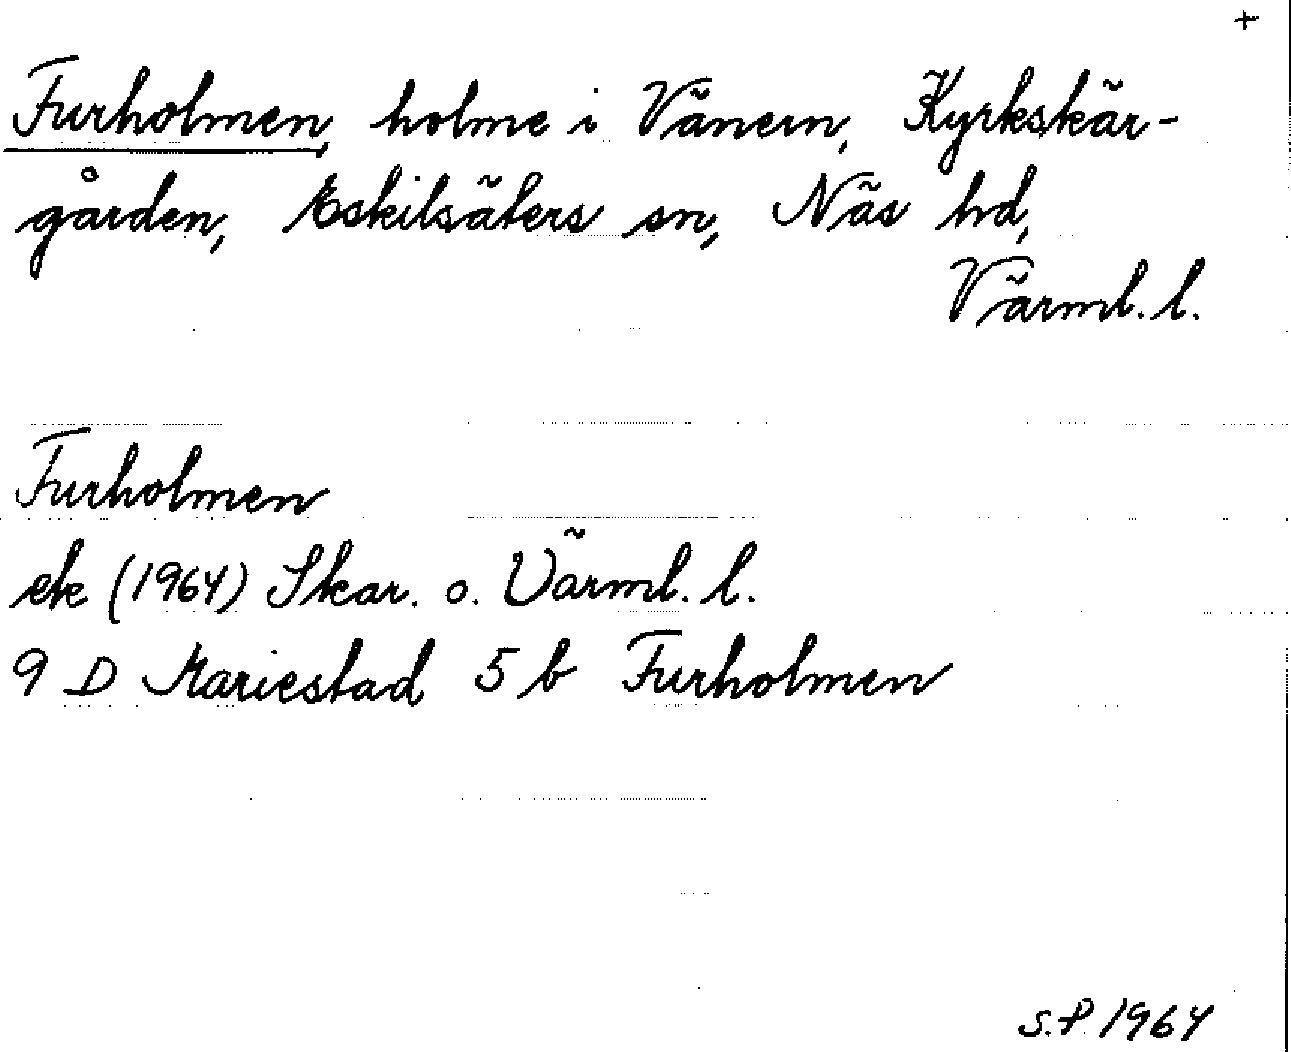 +
Furholmen, holme i Vänern, Kyrkskär-
gården, Eskilsäters sn, Näs hd,
Värml. l.
Furholmen
ek (1964) Skar. o. Värml. l.
9 D Mariestad 5 b Furholmen
S.P. 1964